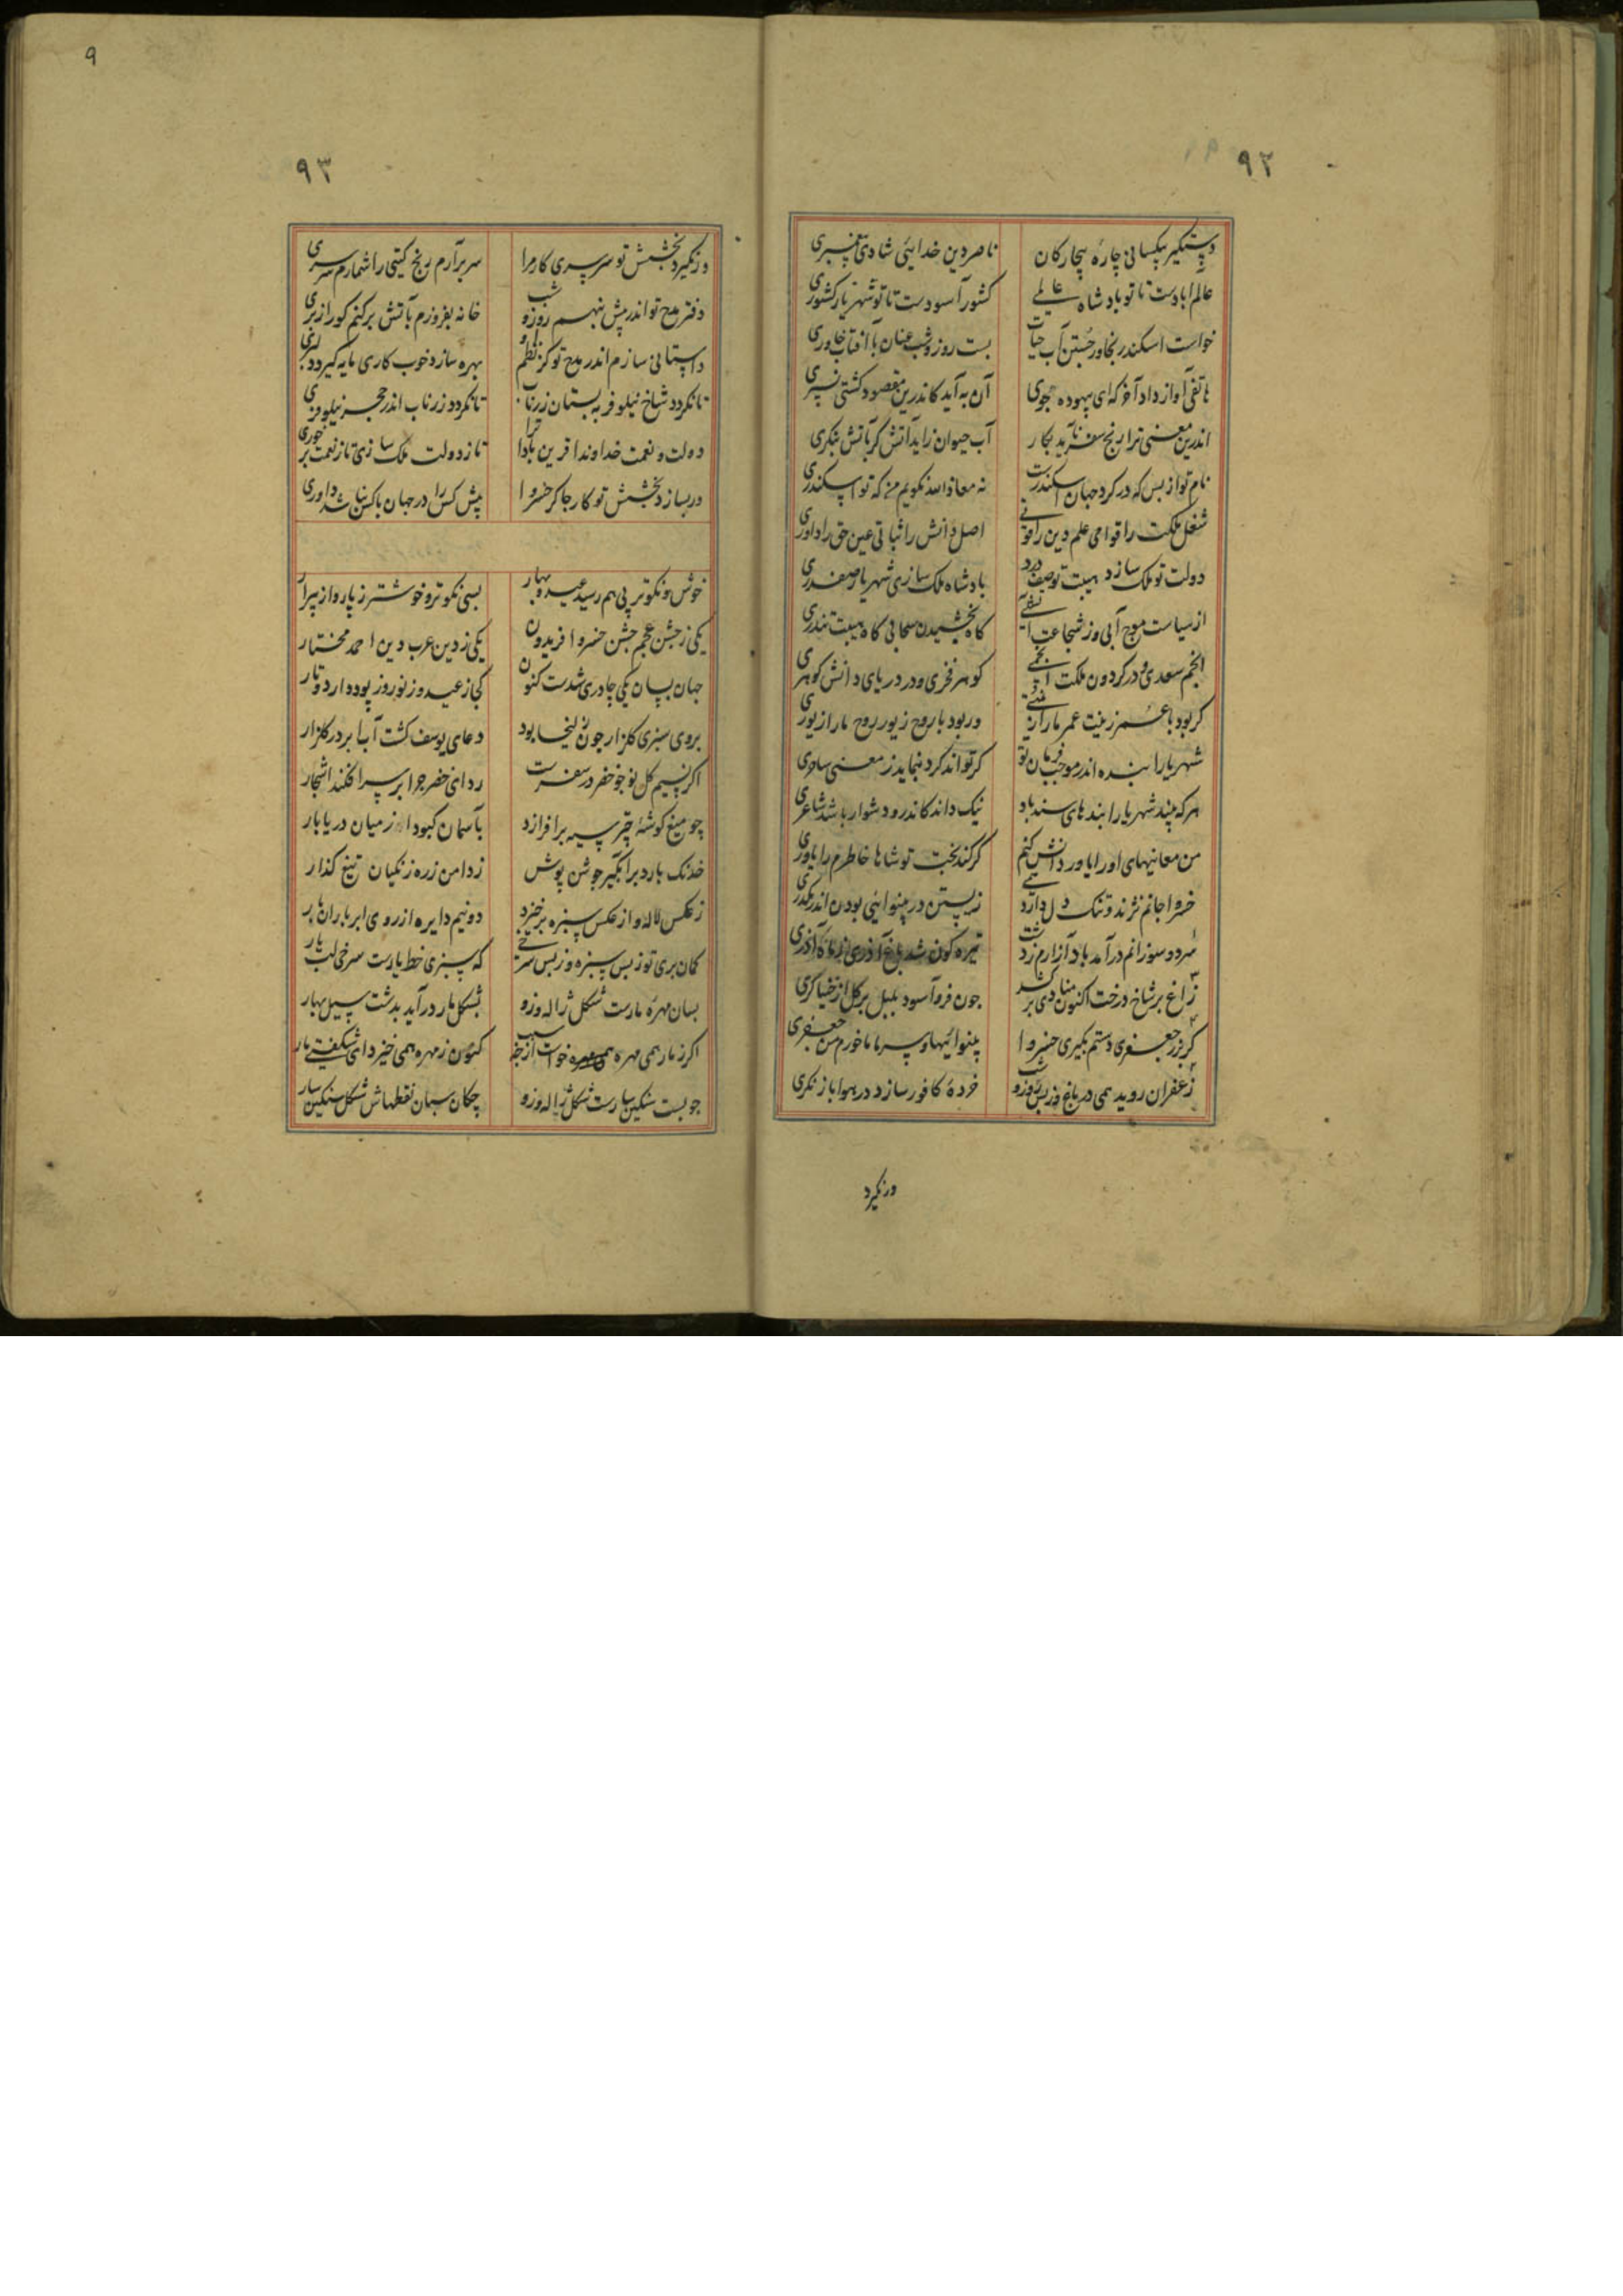 ۹
۹۲
دستگیر بیکسانی چارهٔ بیچارگان ناصر دین خدایی شادی پیغمبری
عالم ابادست تا تو بادشاه عالمی کشور آسودست تا تو شهریار کشوری
خواست اسکندر بخاور جستن آب حیات بست روز و شب عنان با آفتاب خاوری
هاتفی آواز داد آخر که ای بیهوده جوی آن به آید کاندرین مقصود کشتی نسپری
اندرین معنی ترا رنج سفر ناید بکار آب حیوان زاید آتش گر بآتش بنگری
نام تو از بس که در گرد جهان اسکندرست نه معاذالله نگویم من که تو اسکندری
شغل ملکت را قوامی علم دین را قوتی اصل دانش را ثباتی عین حق را داوری
دولت تو ملک سازد هیبت تو صف درد بادشاه ملک سازی شهریار صفدری
از سیاست موج آبی وز شجاعت آتشی گاه بخشیدن سحابی گاه هیبت تندری
انجم سعدی و در گردون ملکت انجمی گوهر فخری و در دریای دانش گوهری
گر بود با عمر زینت عمر ما را زینتی ور بود با روح زیور روح ما را زیوری
شهریارا بنده اندر موجب فرمان تو گر تواند کرد بنماید ز معنی ساحری
هر که بیند شهریارا پندهای سندباد نیک داند کاندرو دشوار باشد شاعری
من معانیهای او را یاور دانش کنم گر کند بخت تو شاها خاطرم را یاوری
خسروا جانم نژند و تنگ دل دارد همی زیستن در بینوایی بودن اندر
سرد و سوزانم درآمد باد آزارم زدشت تیره گون شد باغ آذری
زاغ بر شاخ درخت اکنون منادی بر کشد چون فرو آسود بلبل بر گل از خنیاگری
گر بزر جعفری دستم نگیری خسروا بینوائیها و سرماها خورم من جعفری
زعفران روید همی در باغ وز بس روز و شب خردهٔ کافور سازد در هوا باز نگری
ورنگیرد
۹۳
ورنگیرد بخشش تو سرسری کار مرا سر برآرم رنج گیتی را شمارم سرسری
دفتر مدح تو اندر پیش بنهم روز و شب خانه بفروزم بآتش بر کنم کور از بری
داستانی سازم اندر مدح تو کز نظم او بهره سازد خوب کاری مایه گیرد دلبری
تا نگردد شاخ نیلوفر به بستان زر ناب تا نگردد زر ناب اندر حجر نیلوفری
دولت و نعمت خداوندا قرین بادا ترا تا ز دولت ملک سازی تا ز نعمت بر خوری
ور بسازد بخشش تو کار چاکر خسروا پیش کس را در جهان با کس نباشد داوری
خوش و نکوتر پی هم رسید عید و بهار بسی نکوتر و خوشتر ز پار و از پیرار
یکی ز جشن عجم جشن خسرو افریدون یکی ز دین عرب دین احمد مختار
جهان بسان یکی چادری شدست کنون کجا ز عید و ز نوروز پود دارد و تار
بروی سبزی گلزار چون زلیخا بود دعای یوسف گشت آب ابر در گلزار
اگر نسیم گل نو چو خضر در سفرست ردای خضر چرا بر سر افکند اشجار
چو میغ گوشهٔ چتر سیه برافرازد بآسمان کبود از میان دریابار
خدنگ بارد بر آبگیر جوشن پوش ز دامن زره زنگیان تیغ گذار
ز عکس لاله و از عکس سبزه برخیزد دو نیم دایره از روی ابر باران بار
گمان بری تو ز بس سبزه و ز بس سرخی که سبزی خط یارست سرخی لب یار
بسان مهرهٔ مارست شکل ژاله وزو بشکل مار درآید بدشت سیل بهار
اگر ز مار همی مهره خواست از چه سبب کنون ز مهره همی خیزد ای شگفتی مار
چو بست سنگین سارست شکل ژاله وزو چکان بسان نقطهاش شکل سنگین سار